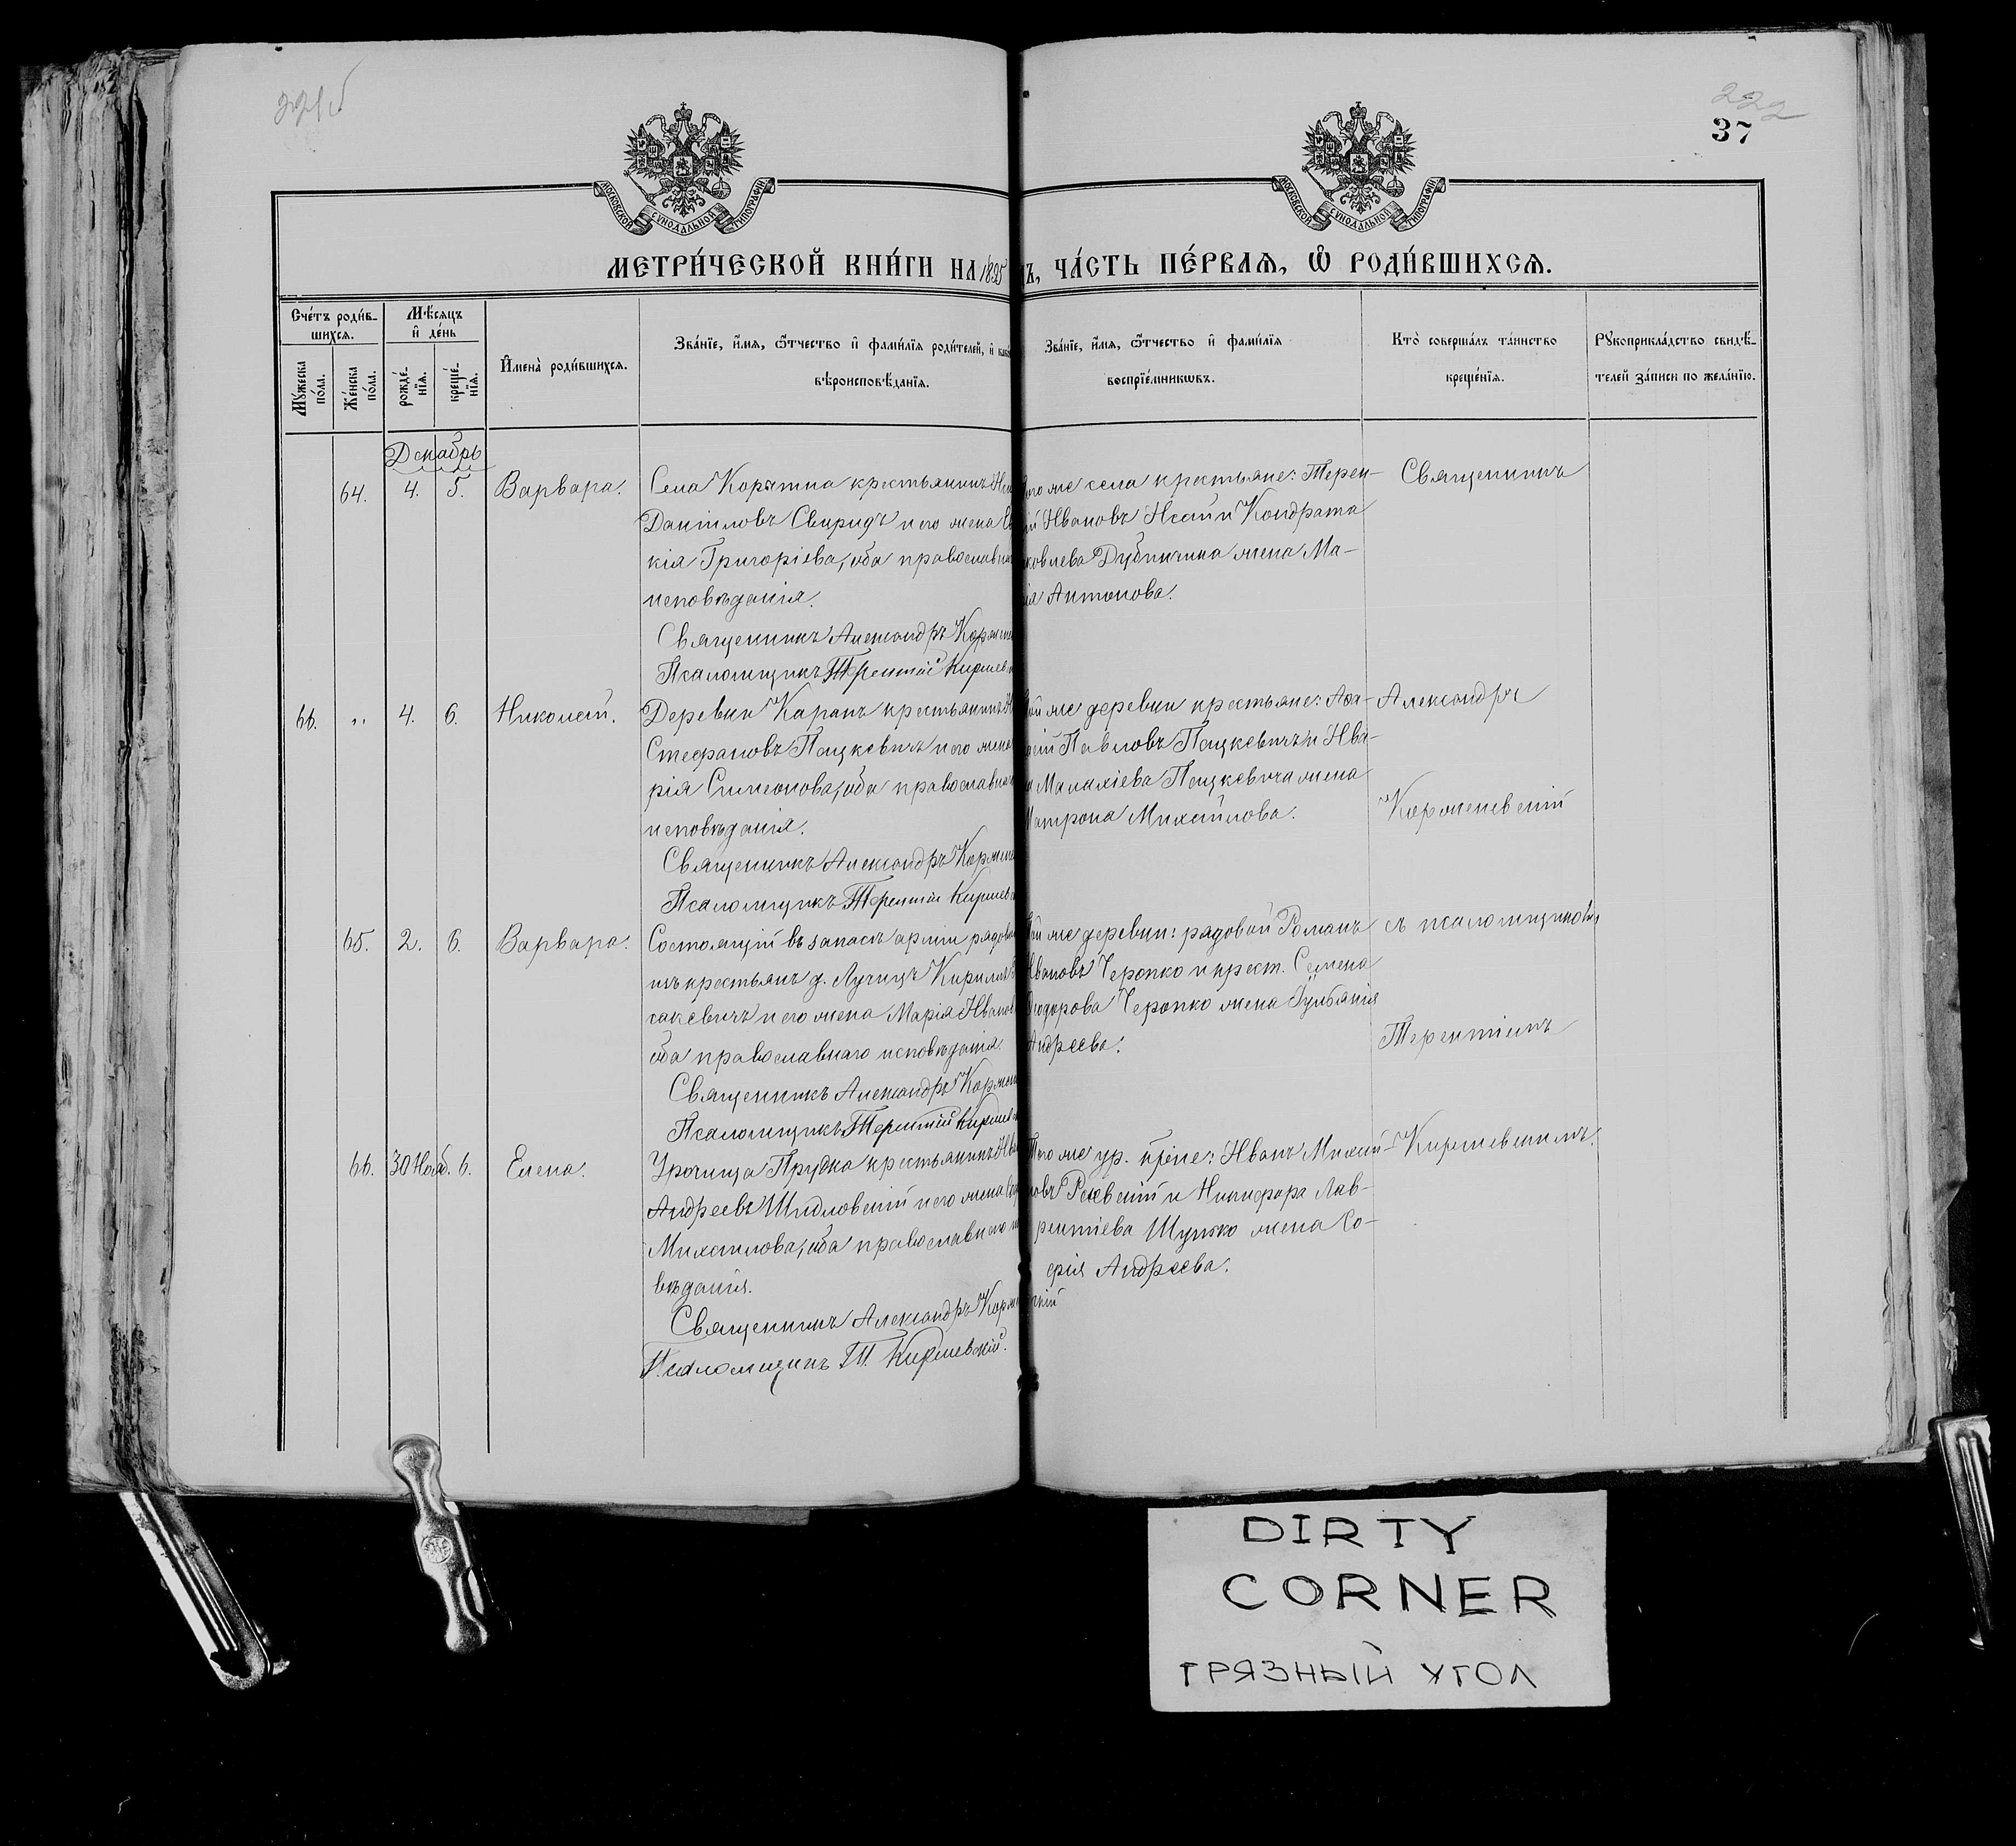 221б
222
37
МОСКОВСКОЙ СѴНОДАЛЬНОЙ ТИПОГРАФІИ
МОСКОВСКОЙ СѴНОДАЛЬНОЙ ТИПОГРАФІИ
МЕТРИ́ЧЕСКОЙ КНИ́ГИ НА 1895
Ъ, ЧА́СТЬ ПЕ́РВАѦ, Ѽ РОДИ́ВШИХСѦ.
Сче́тъ роди́в-
шихсѧ.
Мѣ́сѧцъ
и҆ де́нь
Мꙋ́жеска по́ла.
Же́нска по́ла.
рожде́-нїѧ.
креще́-нїѧ.
И҆мена̀ роди́вшихсѧ.
Зва́нїе, и҆́мѧ, ѻ҆́тчество и҆ фами́лїѧ роди́телей, и҆
вѣроисповѣ́данїѧ.
Зва́нїе, и҆́мѧ, ѻ҆́тчество и҆ фами́лїѧ
воспрїе́мникѡвъ.
Кто̀ соверша́лъ та́инство
креще́нїѧ.
Рꙋкоприкла́дство свидѣ́-
телей за́писи по жела́нїю.
Декабрь
64. 4. 5. Варвара.
Села Корятна крестьянинъ
Даніиловъ Свиридъ и его жена
кія Григоріева, оба православна
исповѣданія.
Священникъ Александръ Корж
Псаломщикъ Терентій Киршев
го же села крестьяне: Терен-
ій Ивановъ Исай и Кондрата
ковлева Дубинчина жена Ма-
ія Антонова.
Священникъ
66. " 4. 6. Николай.
Деревни Карапъ крестьянинъ
Стефановъ Пацкевичъ и его жена
рія Симеонова, оба православна
исповѣданія.
Священникъ Александръ Корж
Псаломщикъ Терентій Киршев
ой же деревни крестьяне: Афа-
асій Павловъ Пацкевичъ и Ива-
а Малахіева Пацкевича жена
Матрона Михайлова.
Александръ
Корженевскій
65. 2. 6. Варвара.
Состоящій въ запасѣ арміи рядово
изъ крестьянъ д. Лучицъ Кириллъ
сакевичъ и его жена Марія Иванов
оба православнаго исповѣданія.
Священникъ Александръ Корже
Псаломщикъ Терентій Киршев
ой же деревни: рядовой Романъ
Ивановъ Черопко и крест. Семена
Ѳеодорова Черопко жена Іуліанія
Андреева.
съ псаломщикомъ
Терентіемъ
66. 30 Нояб. 6. Елена.
Урочища Прудка крестьянинъ Ива
Андреевъ Шидловскій и его жена
Михайлова, оба православнаго
вѣданія.
Священникъ Александръ Корже
скій
Псаломщикъ Т. Киршевскій.
Того же ур. кр-не: Иванъ Михай-
ловъ и Никифора Лав-
рентіева Шупско жена Со-
фія Андреева.
Киршевскимъ.
DIRTY
CORNER
ГРЯЗНЫЙ УГОЛ